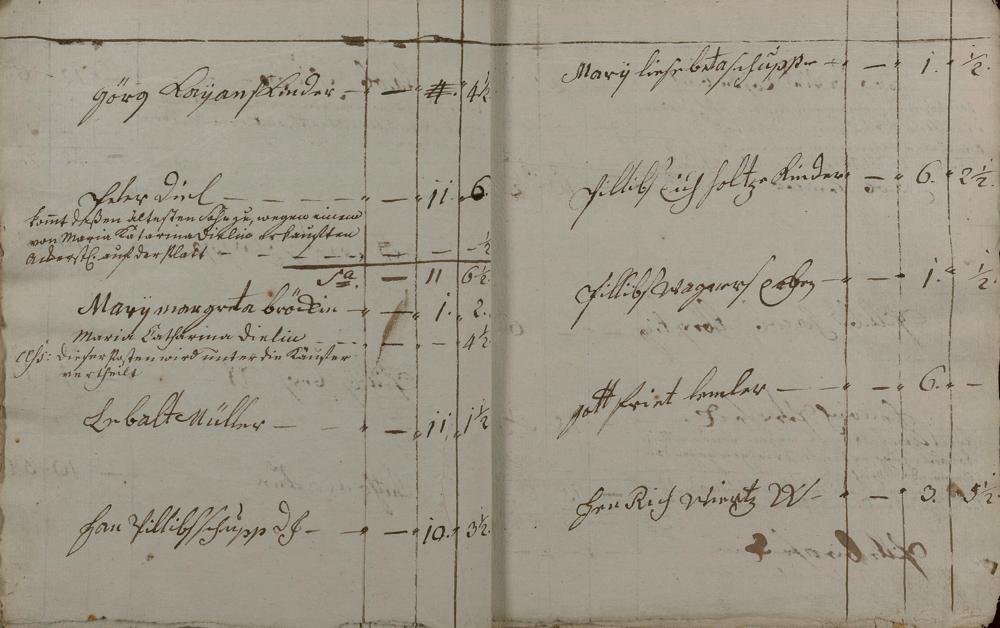 görg Kinder — 4½
Peter Diel — 11. 6
kommt deßen ältesten Sohn zu, wegen einem
von Maria Katarina Dielin erkauften
Ackerstk. auf der Platt — ½
Sa. — 11 6½
Mary margreta bröckin — 1. 2.
Maria Catharina Dielin — 4½
Dießer Posten wird unter die Käuffer
vertheilt
Lebalt Müller — 11. 1½
han Pillibs schupp — 10. 3½
Mary liesebeta schuppe — 1. ½.
Pillibs holtze Kinder — 6. 2½.
Pillibs Wagners erben — 1. ½
gottfriet lemler — 6. —
hen Rich — 3. 5½